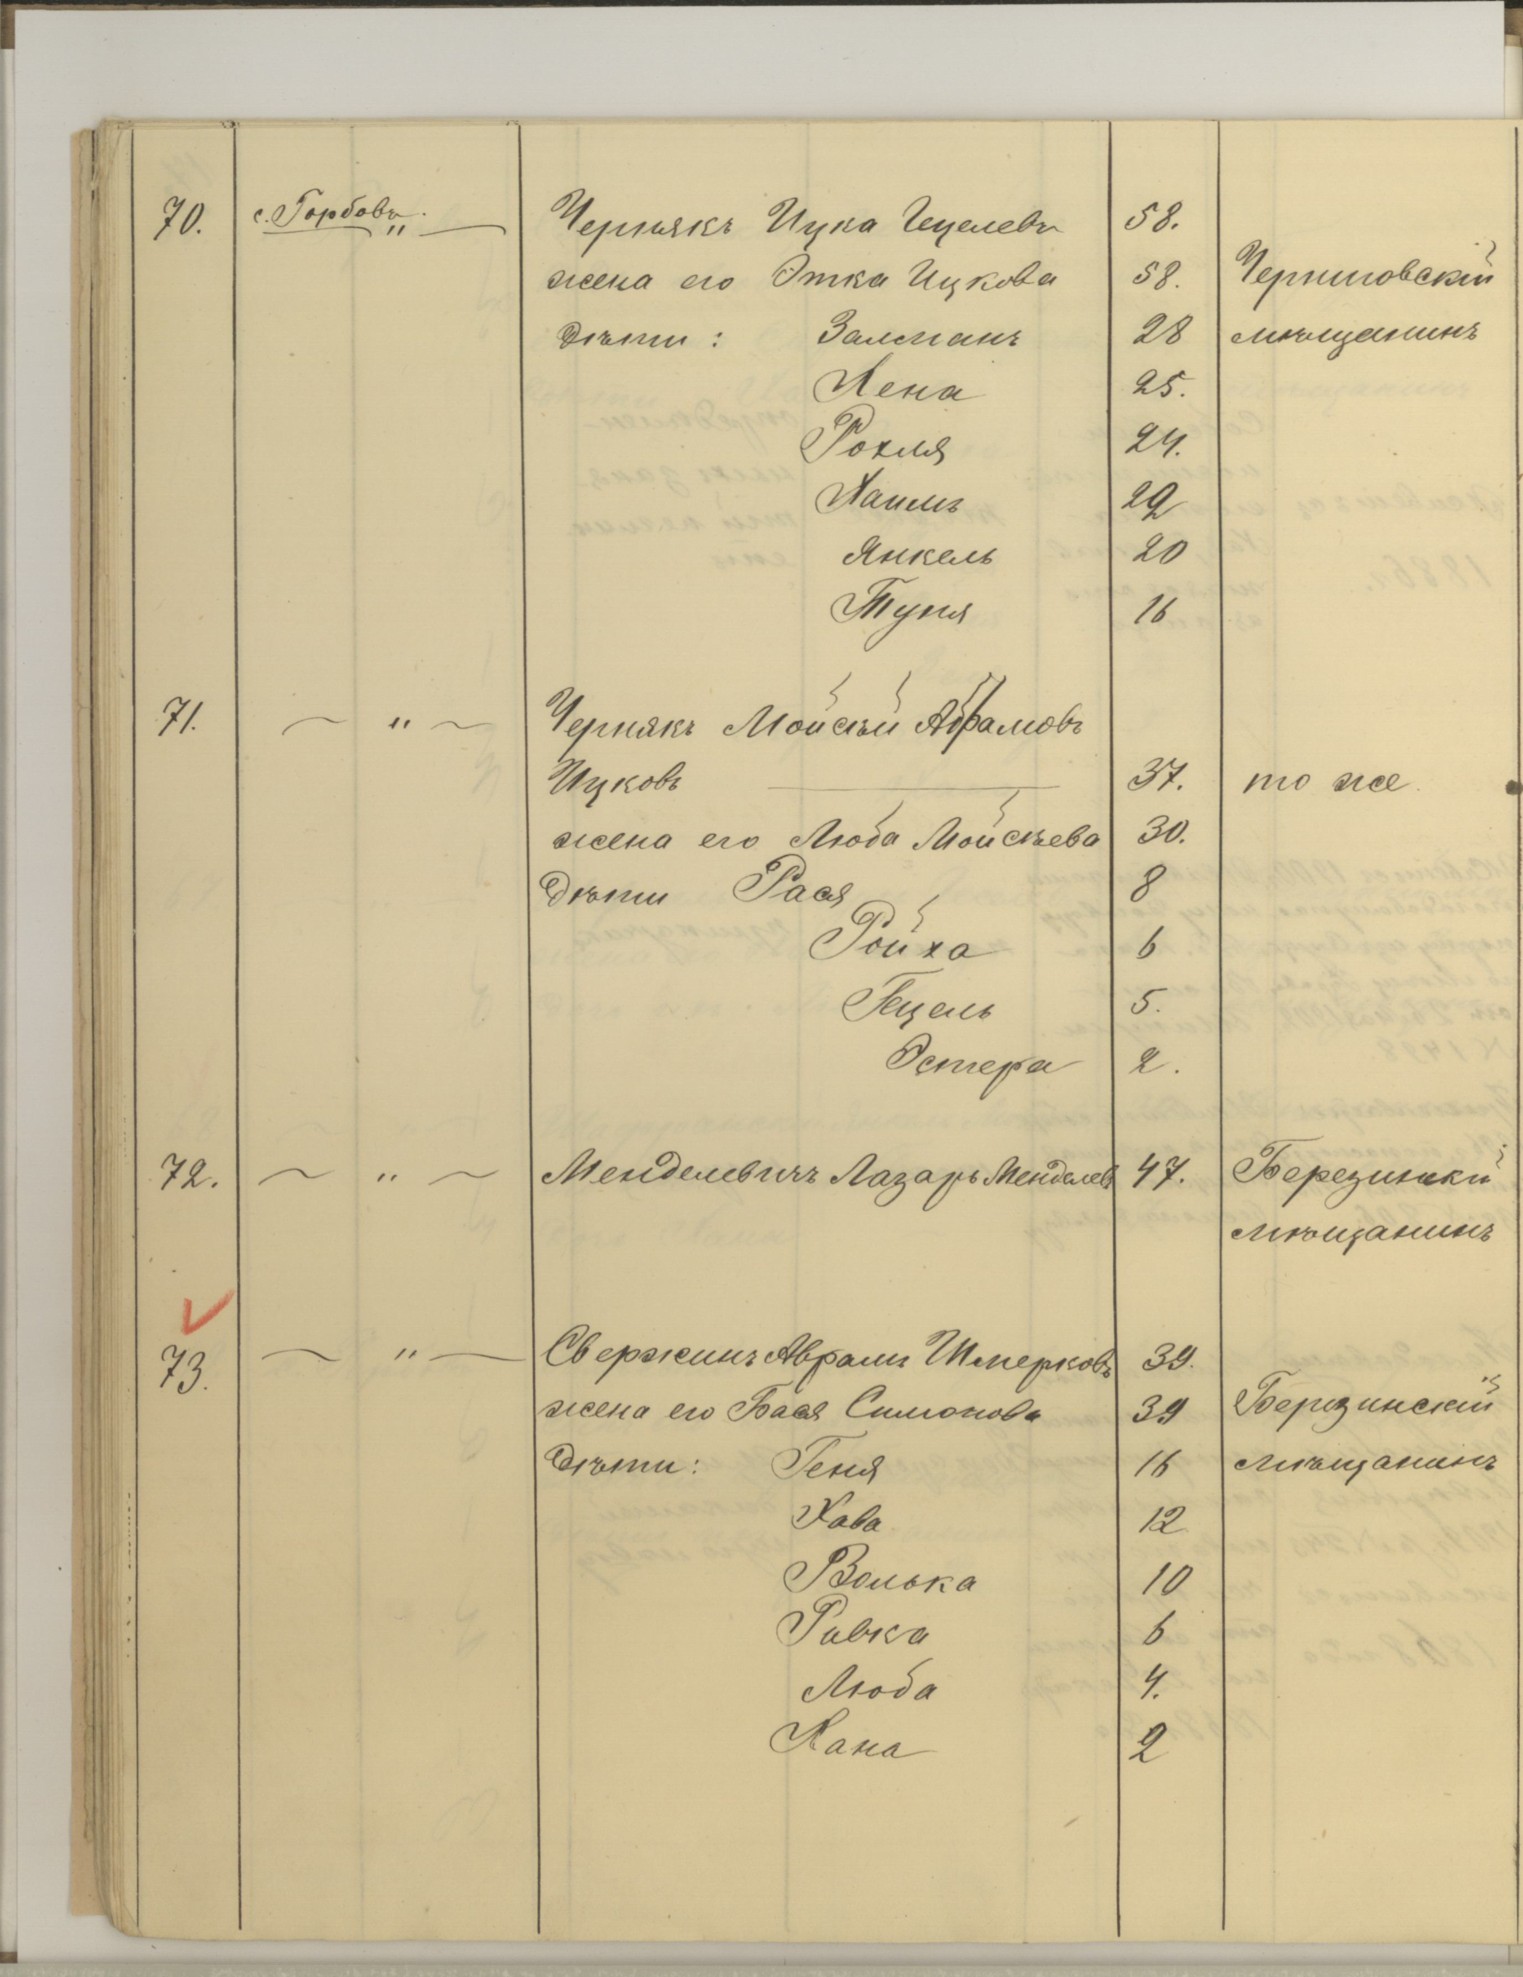 70. с. Горбовъ. " Чернякъ Ицка Гецелевъ 58.
жена его Этка Ицкова 58. Черниговскій
дѣти: Залманъ 28 мѣщанинъ
Хена 25.
Рохля 24.
Хаимъ 22
Янкель 20
Туня 16
71. " Чернякъ Мойсѣй Абрамовъ
Ицковъ 37. то же
жена его Люба Мойсѣева 30.
дѣти Рася 8
Ройха 6
Гецель 5.
Эстера 2.
72. " Менделевичъ Лазарь Менделевъ 47. Березинскій
мѣщанинъ
73. " Свержинъ Аврамъ Шмерковъ 39.
жена его Бася Симонова 39 Березинскій
дѣти: Геня 16 мѣщанинъ
Хава 12
Волька 10
Ривка 6
Люба 4.
Хана 2